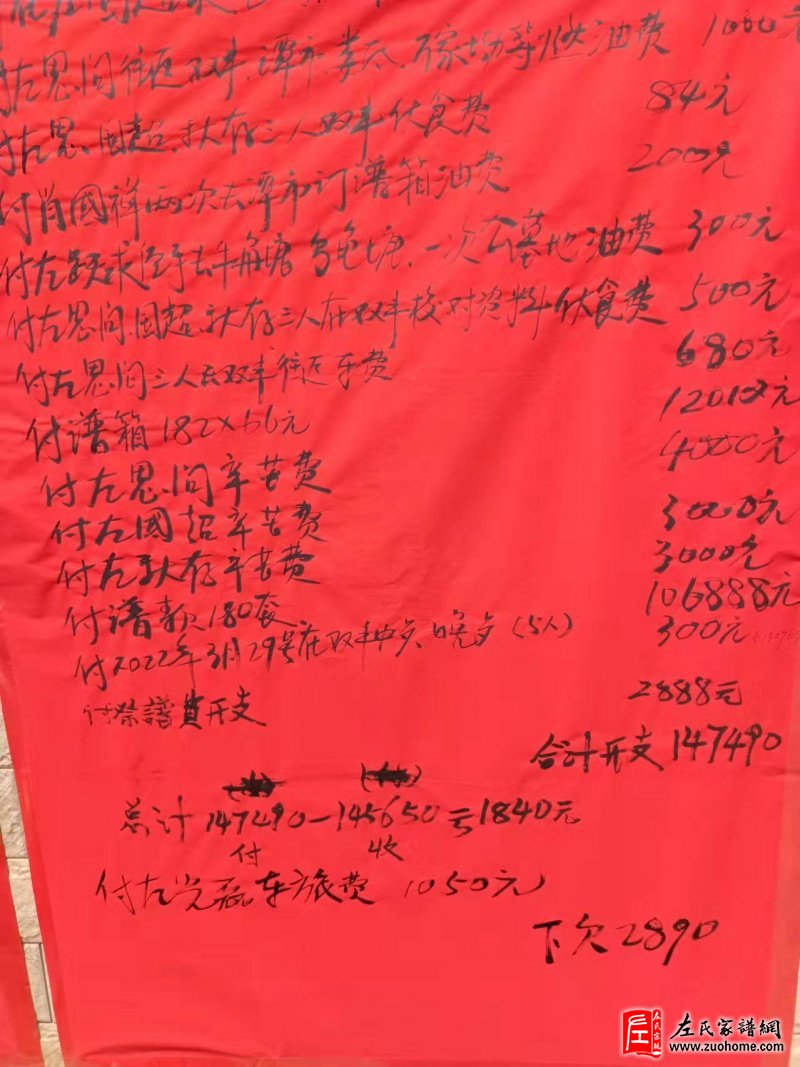 付左思问往返双丰、潭市、娄 等燃油费 1000元
付左思、国超、秋存三人双丰伙食费 84元
付肖國祥两次去潭市订谱箱油费 200元
付左跃求 去牛角塘 一次公墓地油费 300元
付左思问、国超、秋存三人在双丰校对资料伙食费 500元
付左思问三人去双丰往返车费 680元
付谱箱182×66元 12012元
付左思问辛苦费 4000元
付左國超辛苦费 3000元
付左秋存辛苦费 3000元
付谱款180套 106888元
付2022年3月29号在双丰中歺、晚歺(5人) 300元
付祭譜費开支 2888元
合计开支147490
总计147490-145650亏1840元
付 收
付左光磊车旅费 1050元
下欠2890
左氏家譜網
www.zuohome.com